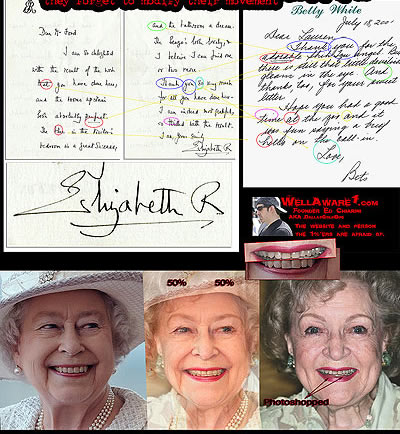 they forget to modify their movement
Dear Mr Ford
I am so delighted
with the result of the work
that you have done here,
and the rooms upstairs
look absolutely perfect.
The in the
bedroom is a great success,
and the bathroom a dream.
The looks lovely, &
I believe I can find one
or two more.
Thank you so very much
for all you have done here.
I am indeed most grateful,
so thrilled with the result.
I am, yours sincerely
Elizabeth R
Betty White
July 18, 200
Dear Lauren,
Thank you for the
adorable children angel. But
there is still that little devilish
gleam in the eye. And
thanks, too, for your sweet
letter.
Hope you had a good
time at the zoo and it
was fun saying a brief
hello on the
Love,
Bets
Elizabeth R
WellAware1.com
Founder Ed Chiarini
AKA DallasGoldBug
The website and person
the 1%'ers are afraid of.
50% 50%
Photoshopped